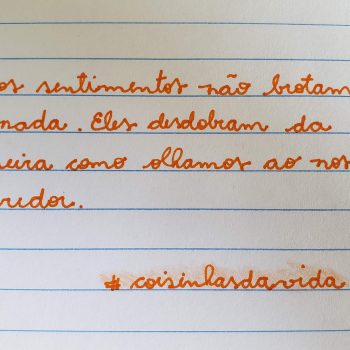 os sentimentos não brotam
nada. Eles desdobram da
eira como olhamos ao nos
redor.
#coisinhasdavida